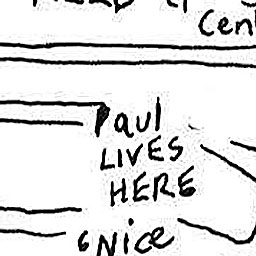 Cent
Paul
LIVES
HERE
Nice